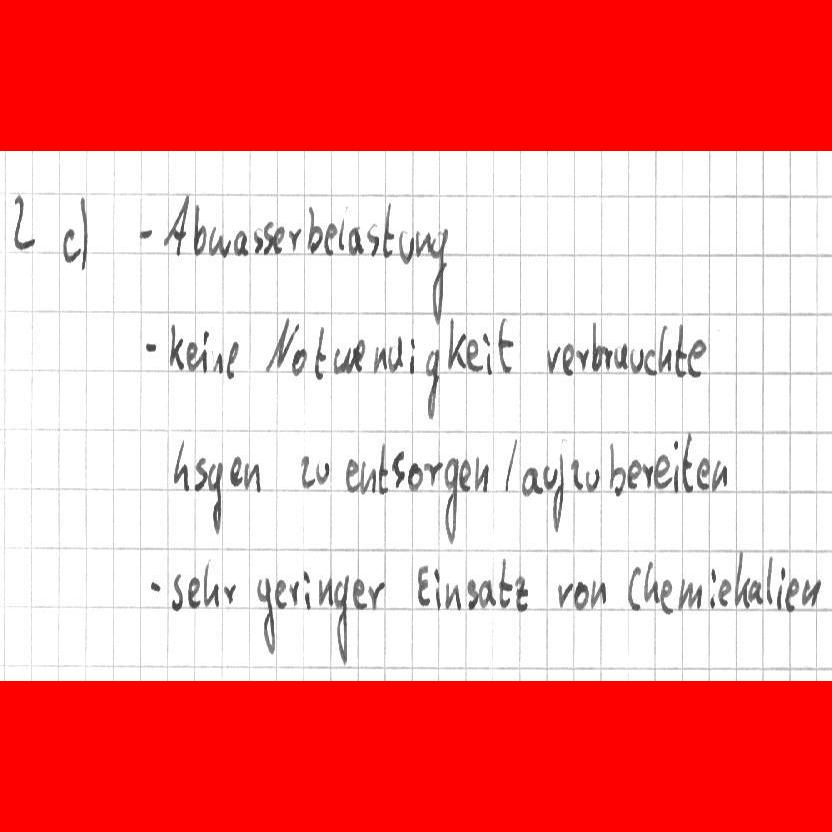 2 c) - Abwasserbelastung
- keine Notwendigkeit verbrauchte
lsgen zu entsorgen / aufzubereiten
- sehr geringer Einsatz von Chemiekalien